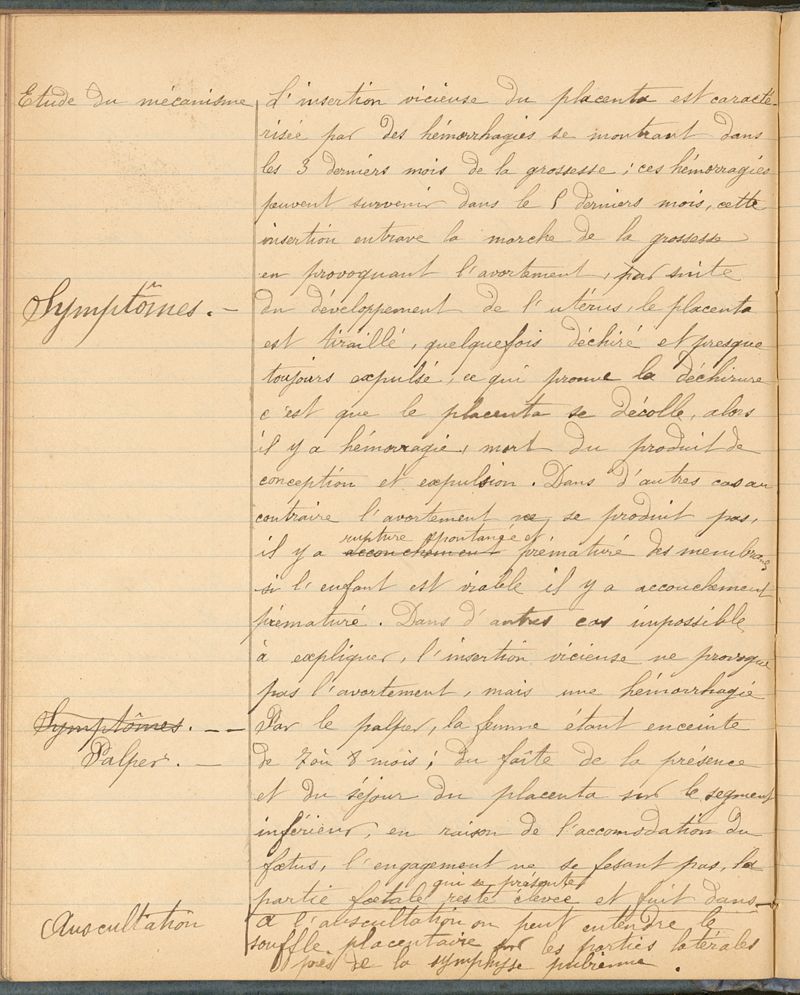 Etude du mécanisme
L'insertion vicieuse du placenta est caracté-
risée par des hémorrhagies se montrant dans
les 3 derniers mois de la grossesse ; ces hémorragies
peuvent survenir dans le 5 derniers mois, cette
insertion entrave la marche de la grossesse
en provoquant l'avortement, par suite
Symptômes. -
du développement de l'utérus, le placenta
est tiraillé, quelquefois déchiré et presque
toujours expulsé, ce qui prouve la déchirure
c'est que le placenta se décolle, alors
il y a hémorragie, mort du produit de
conception et expulsion. Dans d'autres cas au
contraire l'avortement ne se produit pas,
rupture spontanée et
il y a accouchement prématuré des membranes
si l'enfant est viable il y a accouchement
prématuré. Dans d'autres cas impossible
à expliquer, l'insertion vicieuse ne provoque
pas l'avortement, mais une hémorrhagie
Symptômes. - -
Palper. -
Par le palper, la femme étant enceinte
de 7 où 8 mois ; du faîte de la présence
et du séjour du placenta sur le segment
inférieur, en raison de l'accomodation du
fœtus, l'engagement ne se fesant pas, la
qui se présente
partie fœtale reste élevée et fuit dans
Auscultation
A l'abiscultation on peut entendre le
souffle placentaire sur les parties latérales
près de la symphyse pubienne.